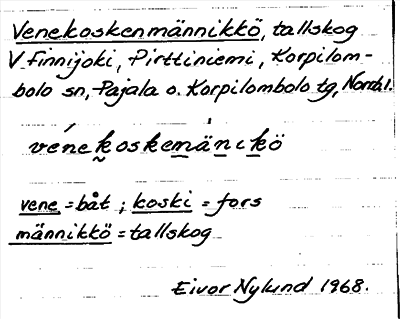 Venekoskenmännikkö, tallskog
V Finnijoki, Pirttiniemi, Korpilom-
bolo sn, Pajala o. Korpilombolo tg, Nordl.
venekoskemänikö
vene = båt ; koski = fors
männikkö = tallskog
Eivor Nylund 1968.